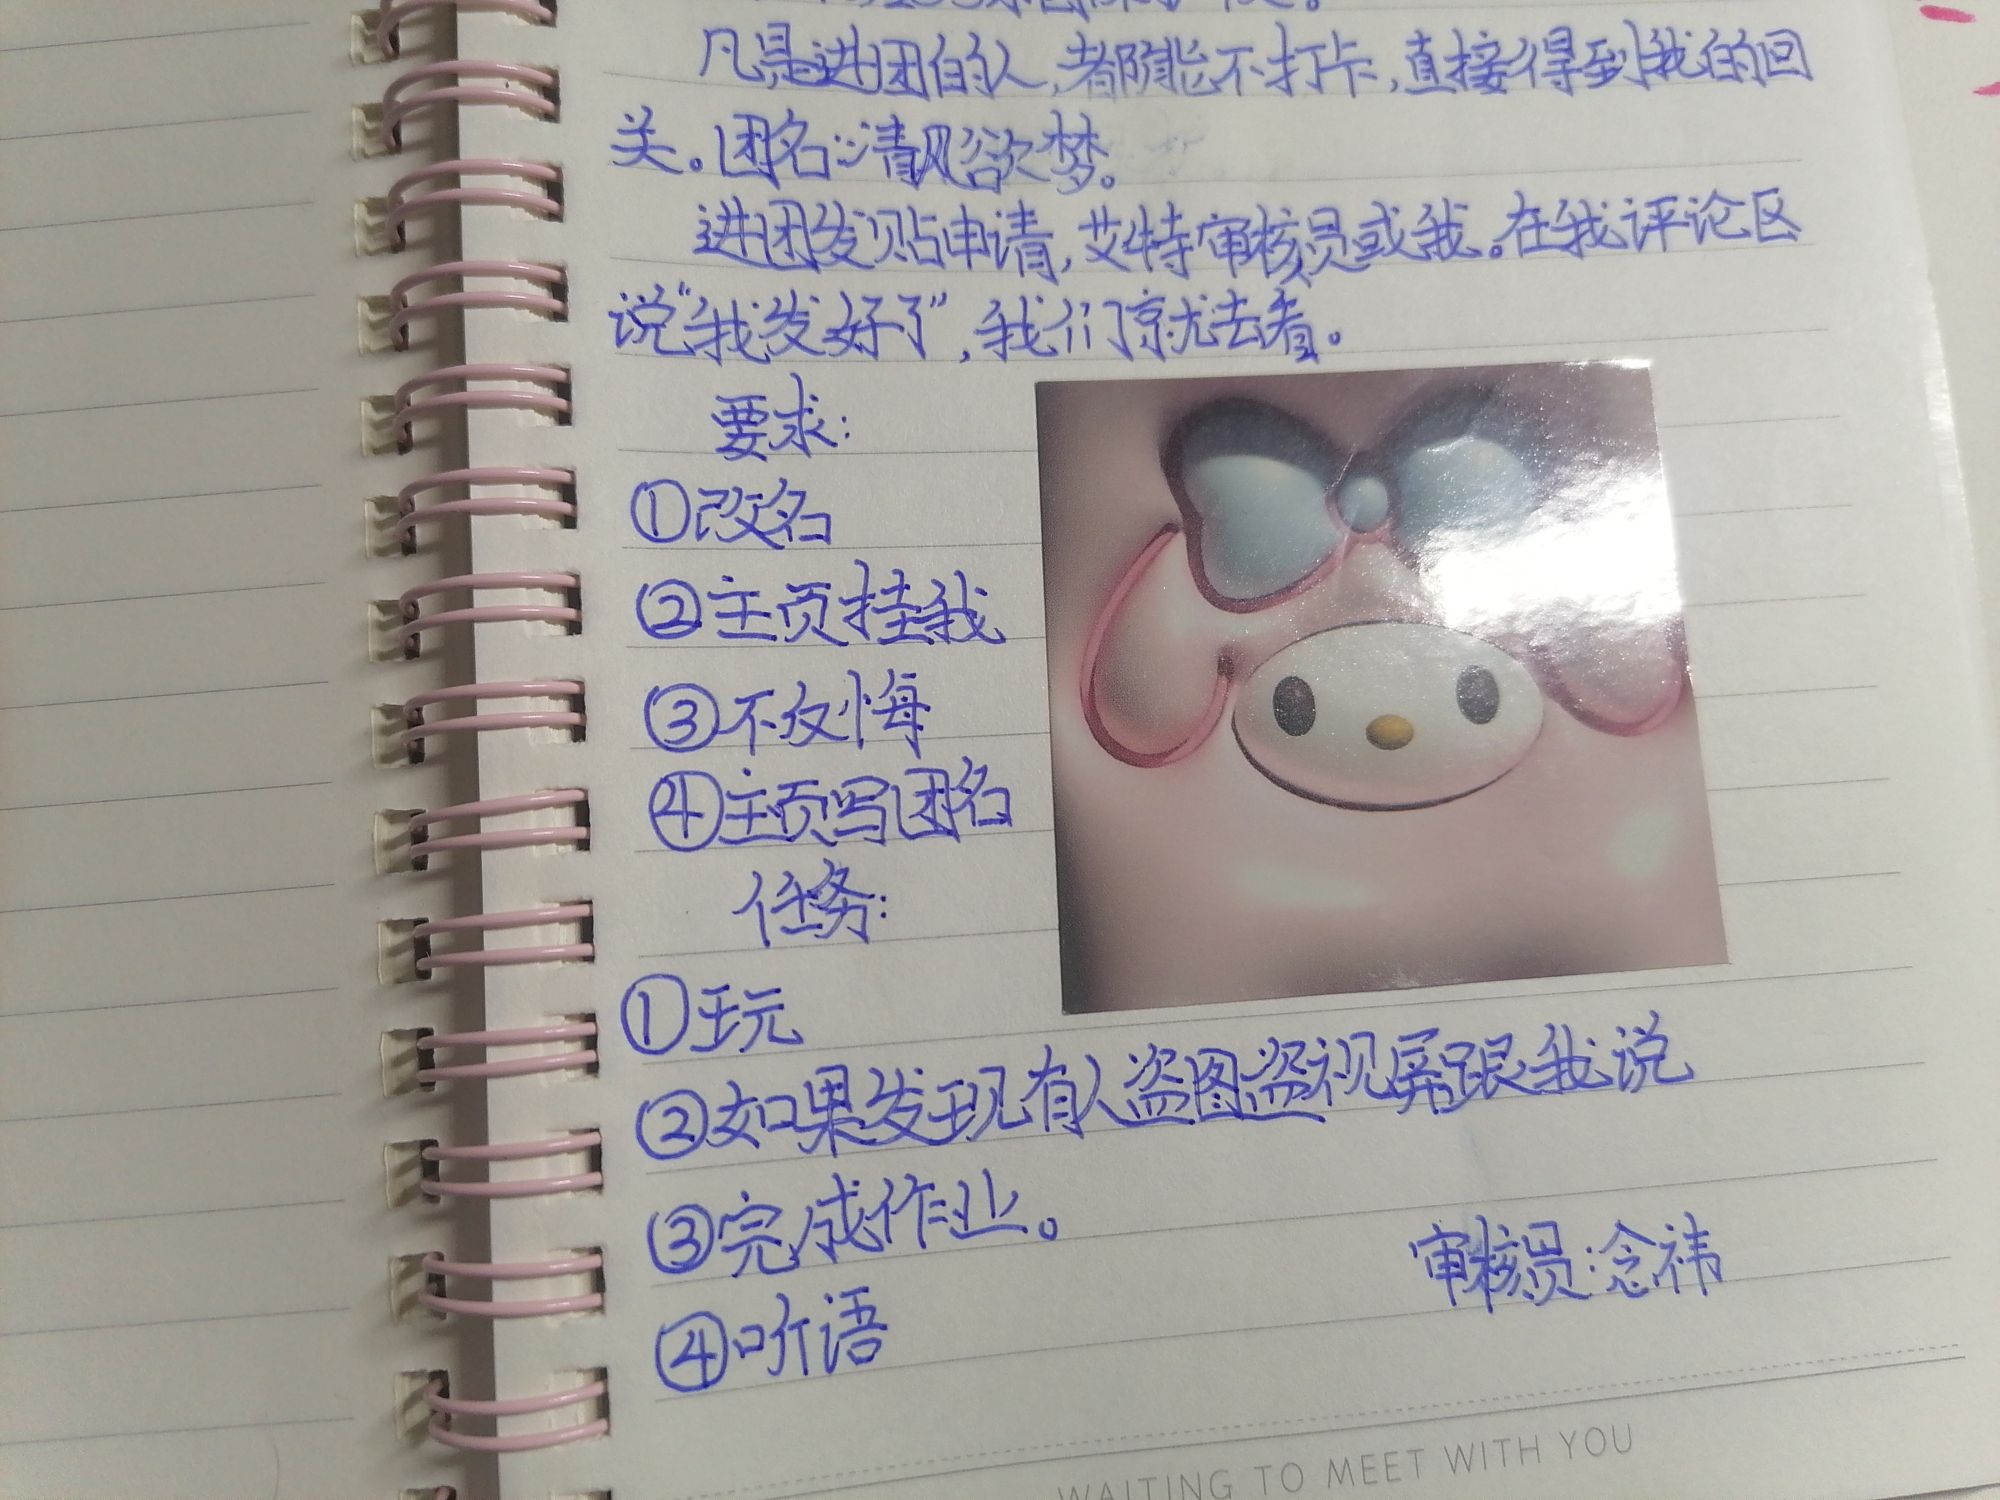 凡是进团的人,都能不打卡,直接得到我的回
关。团名:清风欲梦。
进团发贴申请,艾特审核员或我。在我评论区
说“我发好了”,我们就去看。
要求:
①改名
②主页挂我
③不反悔
④主页写团名
任务:
①玩
②如果发现有人盗图盗视屏跟我说
③完成作业。
审核员:念祎
④听语
WAITING TO MEET WITH YOU